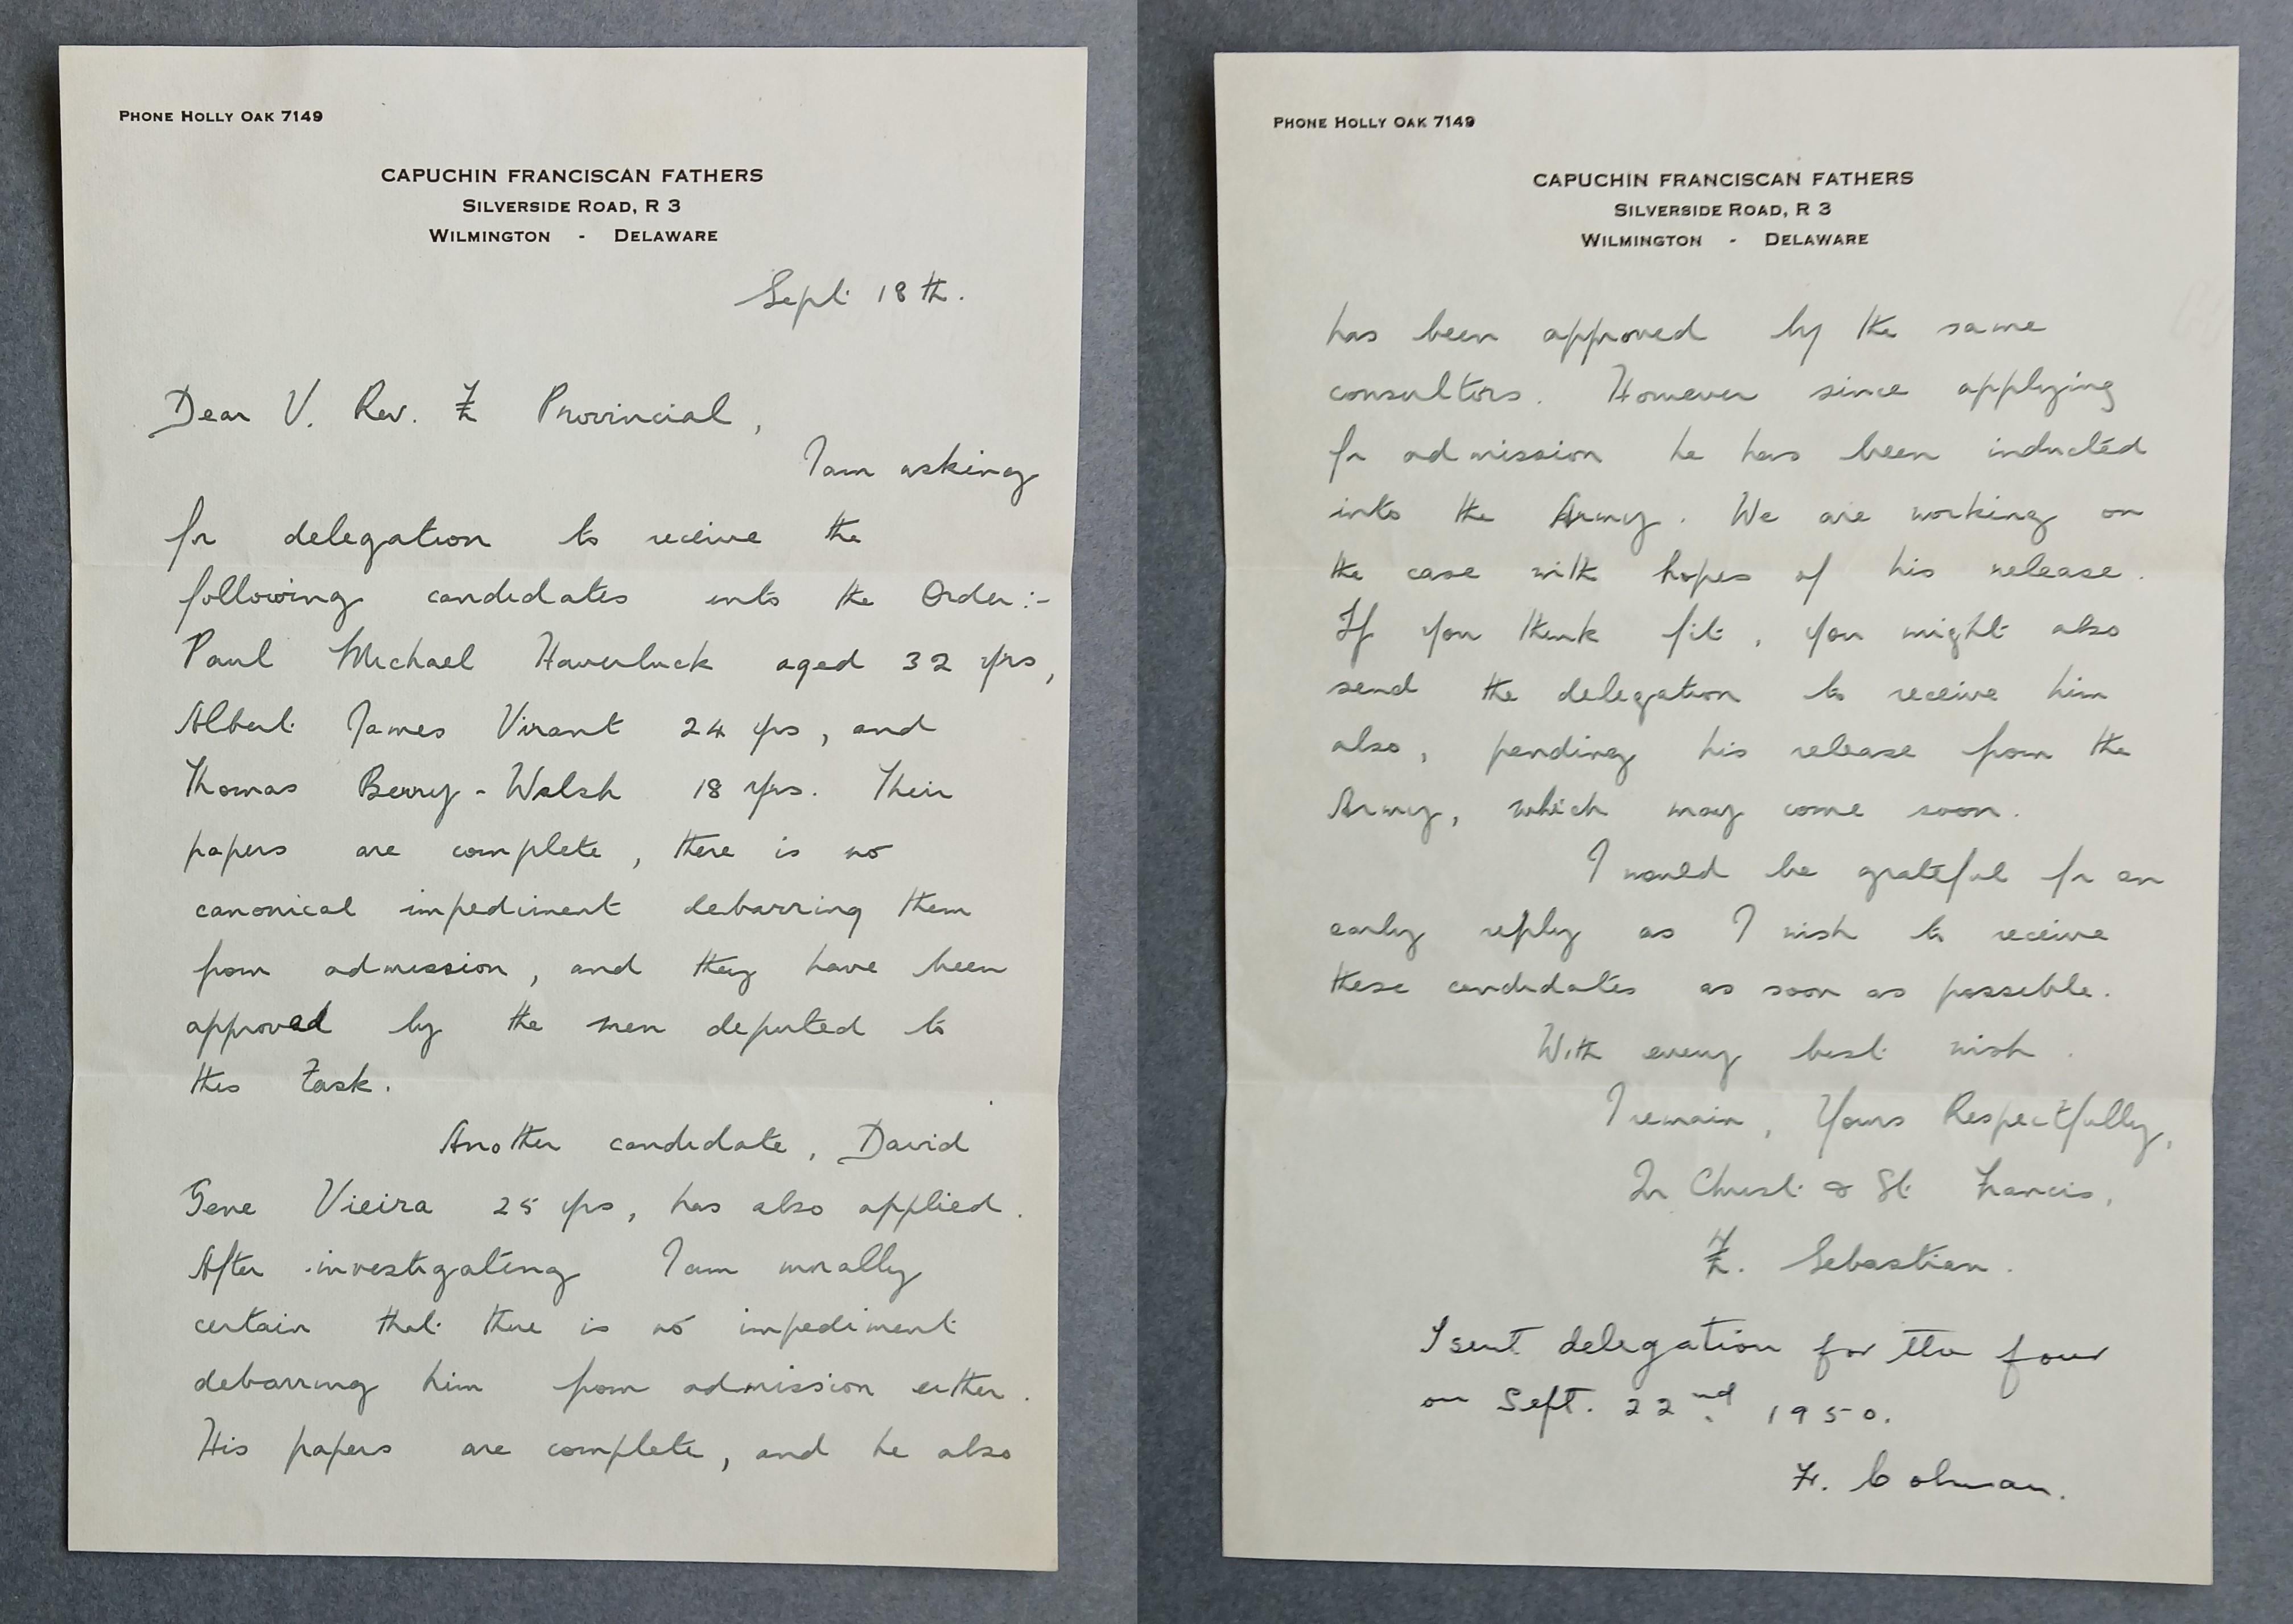 PHONE HOLLY OAK 7149
CAPUCHIN FRANCISCAN FATHERS
SILVERSIDE ROAD, R 3
WILMINGTON - DELAWARE
Sept. 18th.
Dear V. Rev. Fr Provincial,
I am asking
for delegation to receive the
following candidates into the Order:-
Paul Michael Haverluck aged 32 yrs,
Albert James Virant 24 yrs, and
Thomas Berry-Walsh 18 yrs. Their
papers are complete, there is no
canonical impediment debarring them
from admission, and they have been
approved by the men deputed to
this task.
Another candidate, David
Gene Vieira 25 yrs, has also applied.
After investigating I am morally
certain that there is no impediment
debarring him from admission either.
His papers are complete, and he also
PHONE HOLLY OAK 7149
CAPUCHIN FRANCISCAN FATHERS
SILVERSIDE ROAD, R 3
WILMINGTON - DELAWARE
has been approved by the same
consultors. However since applying
for admission he has been inducted
into the Army. We are working on
the case with hopes of his release.
If you think fit, you might also
send the delegation to receive him
also, pending his release from the
Army, which may come soon.
I would be grateful for an
early reply as I wish to receive
these candidates as soon as possible.
With every best wish.
I remain, Yours Respectfully,
In Christ & St. Francis,
Fr. Sebastian.
I sent delegation for the four
on Sept. 22nd. 1950.
Fr. Colman.